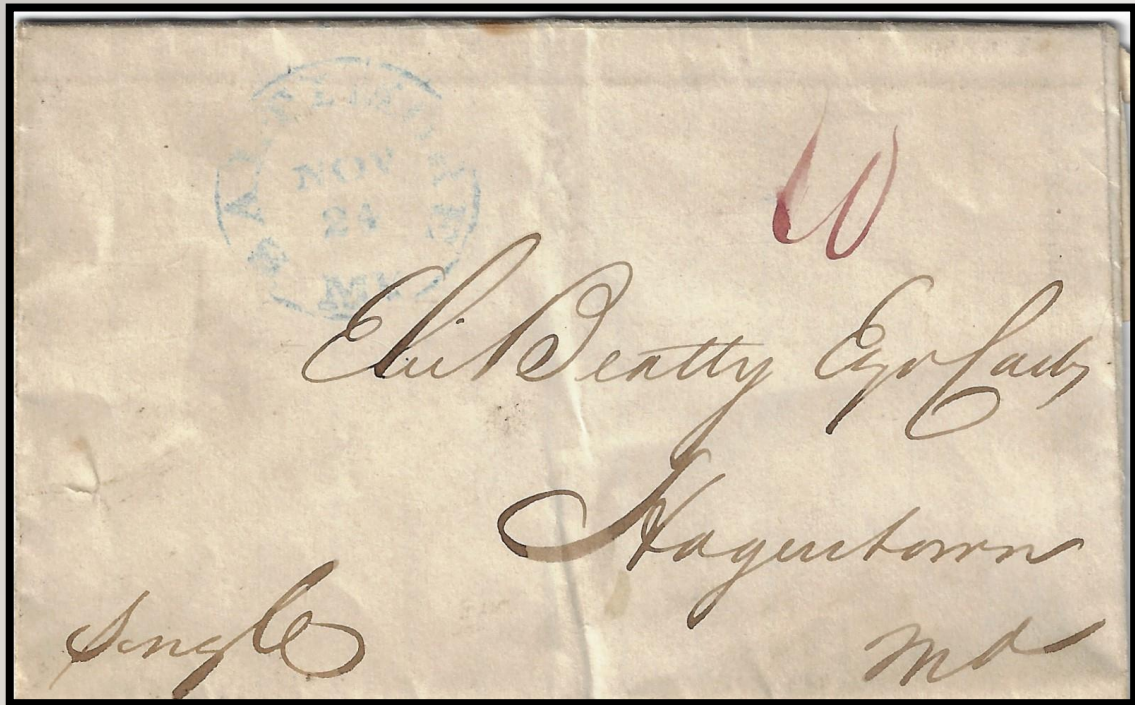 BALTIMORE
NOV
24
MD
10
Eli Beatty Esqr Cash
Hagerstown
Md
Single